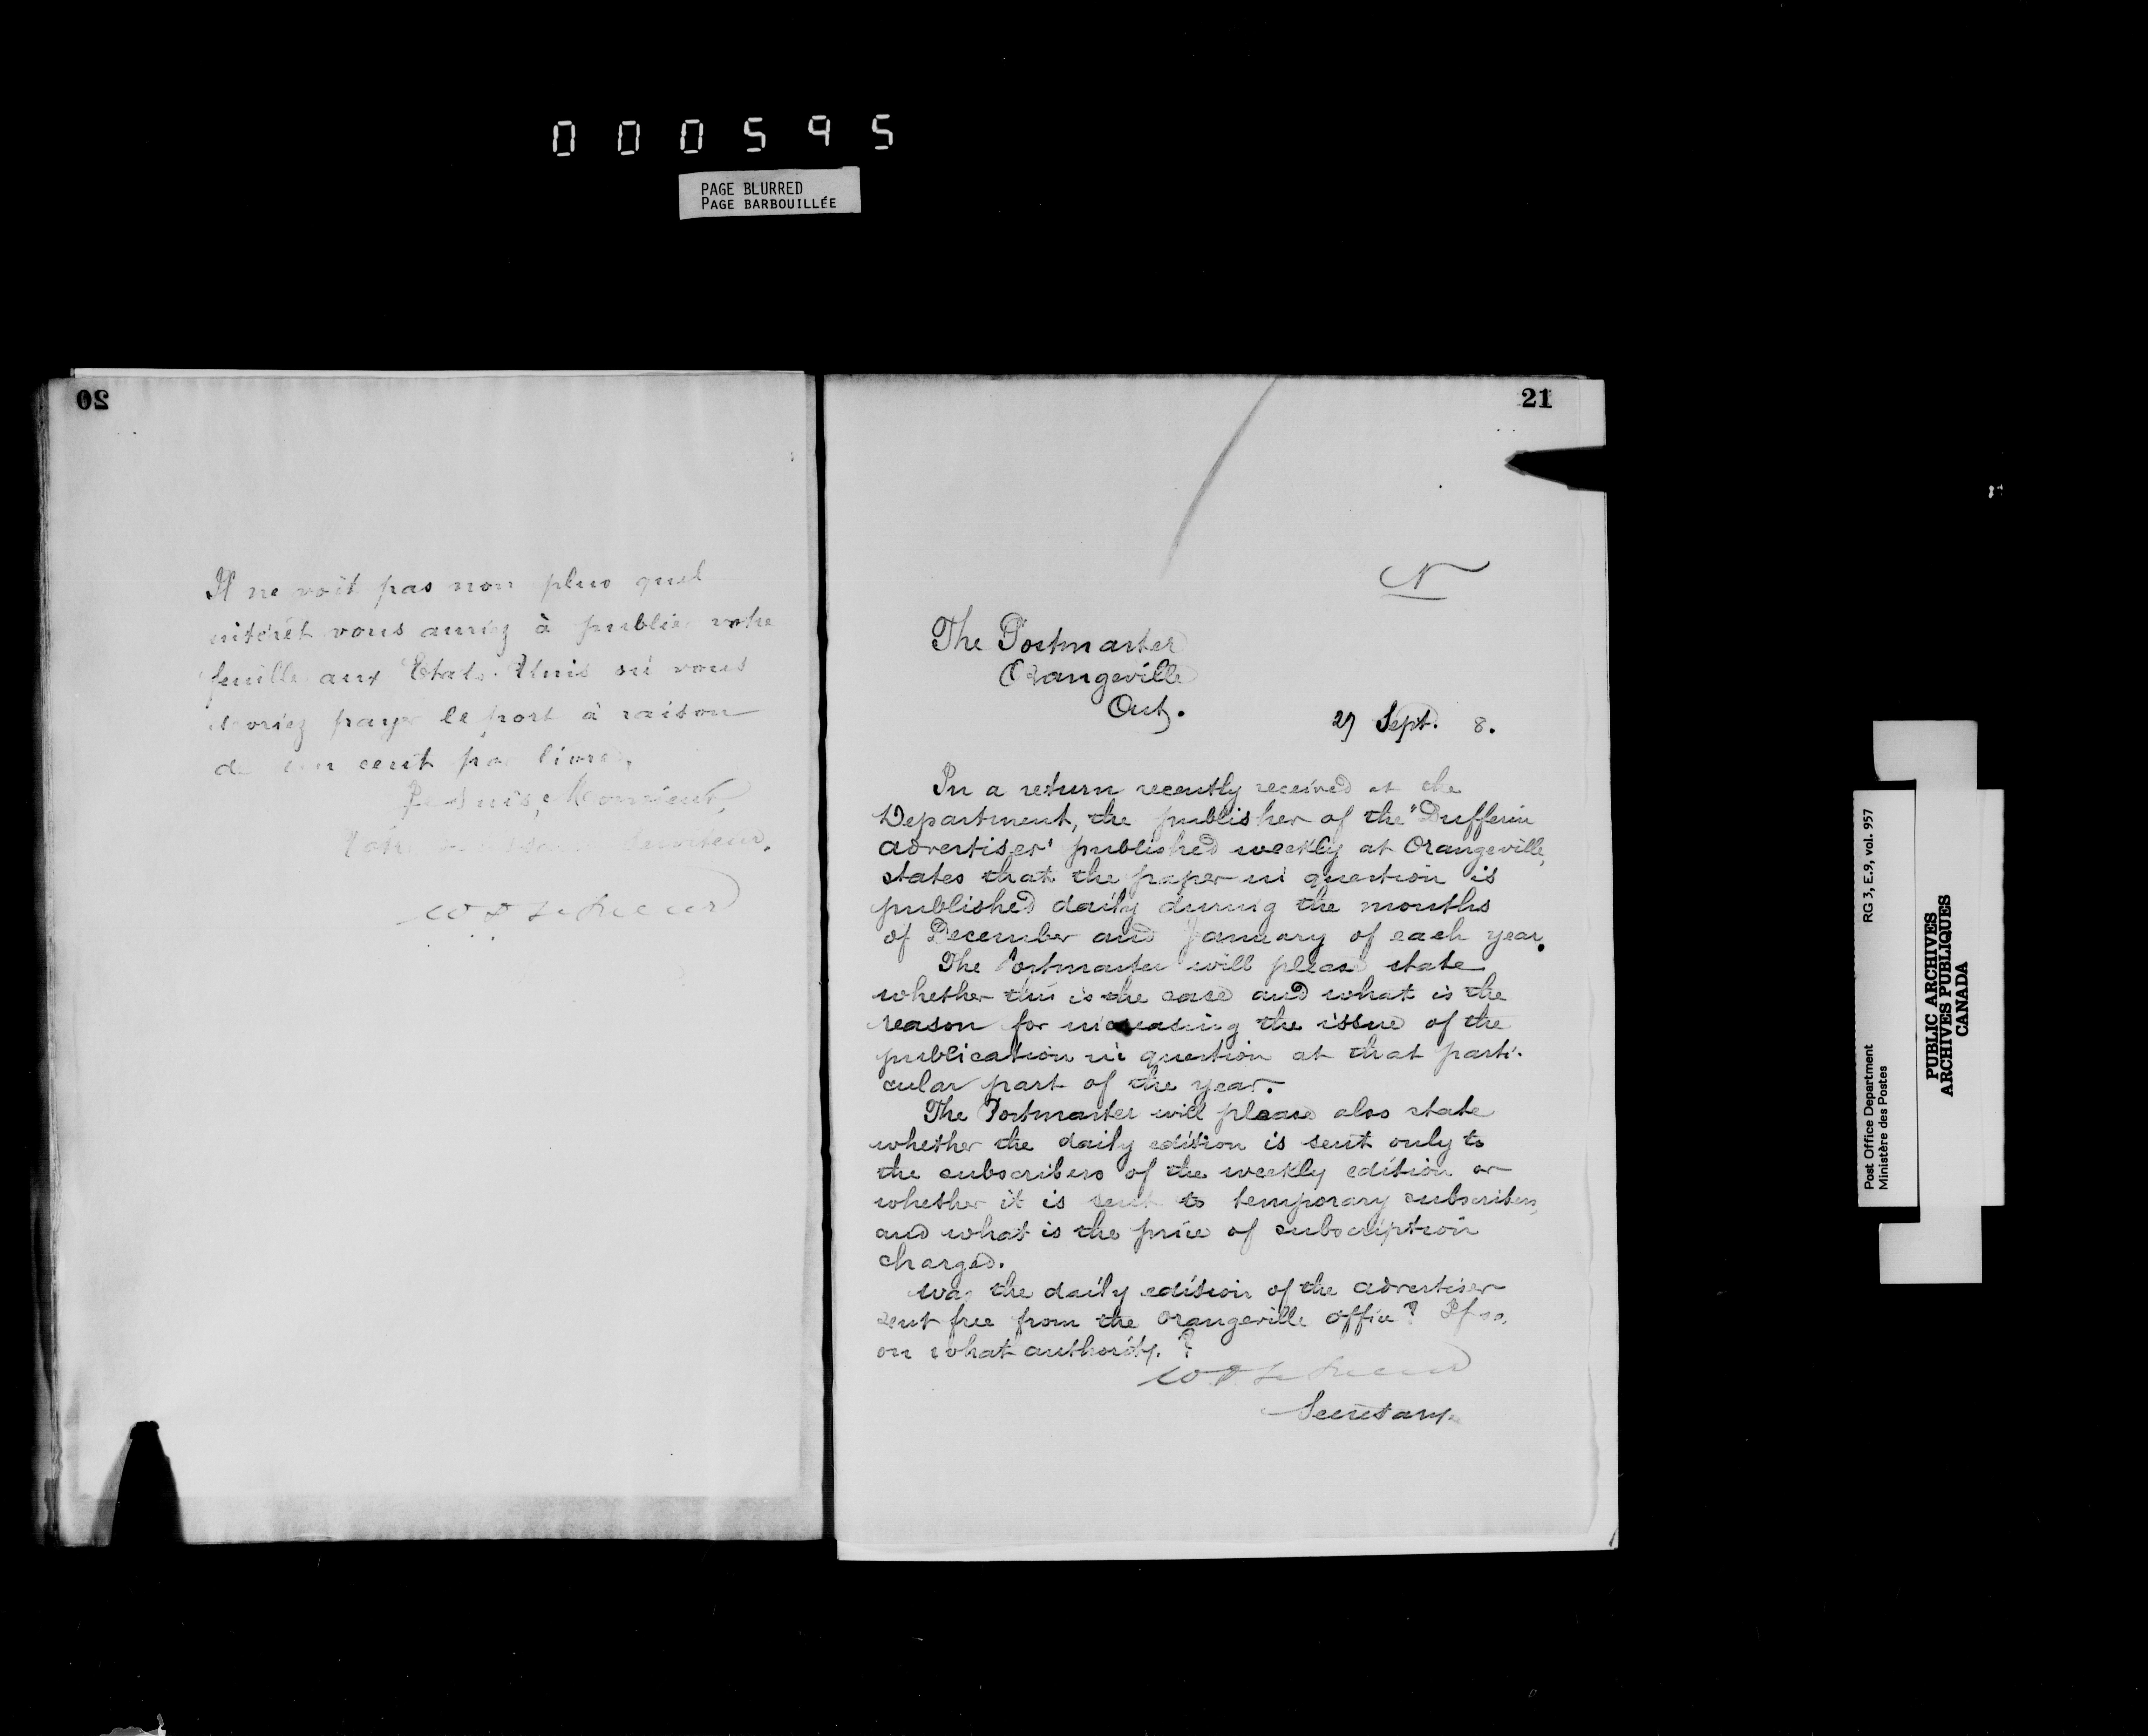 000595
PAGE BLURRED
PAGE BARBOUILLÉE
20
Il ne voit pas non plus quel
intérêt vous auriez à publier votre
feuille aux Etats-Unis si vous
devriez payer le port à raison
de un cent par livre.
Je suis, Monsieur,
Votre obéissant serviteur,
W D LeSueur
21
N
The Postmaster
Orangeville
Ont.
27 Sept. 8.
In a return recently received at the
Department, the publisher of the "Dufferin
advertiser" published weekly at Orangeville,
states that the paper in question is
published daily during the months
of December and January of each year.
The Postmaster will please state
whether this is the case and what is the
reason for increasing the issue of the
publication in question at that parti-
cular part of the year.
The Postmaster will please also state
whether the daily edition is sent only to
the subscribers of the weekly edition or
whether it is sent to temporary subscribers,
and what is the price of subscription
charged.
Was the daily edition of the advertiser
sent free from the Orangeville office? If so,
on what authority.?
W D LeSueur
Secretary.
Post Office Department RG 3, E.9, vol. 957
Ministère des Postes
PUBLIC ARCHIVES
ARCHIVES PUBLIQUES
CANADA